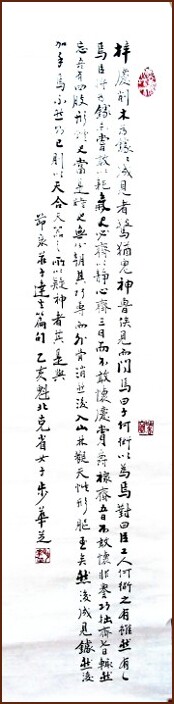 梓慶削木為鐻鐻成見者驚猶鬼神魯侯見而問焉曰子何術以為焉對曰臣工人何術之有雖然有一
焉臣將為鐻未嘗敢以耗氣也必齊以靜心齊三日而不敢懷慶賞爵祿齊五日不敢懷非譽巧拙齊七日輒然
忘吾有四肢形體也當是時也無公朝其巧專而外骨消然後入山林觀天性形軀至矣然後成見鐻然後
加手焉不然則已則以天合天器之所以疑神者其是與
節錄莊子達生篇句 乙亥魁北克省女子步華